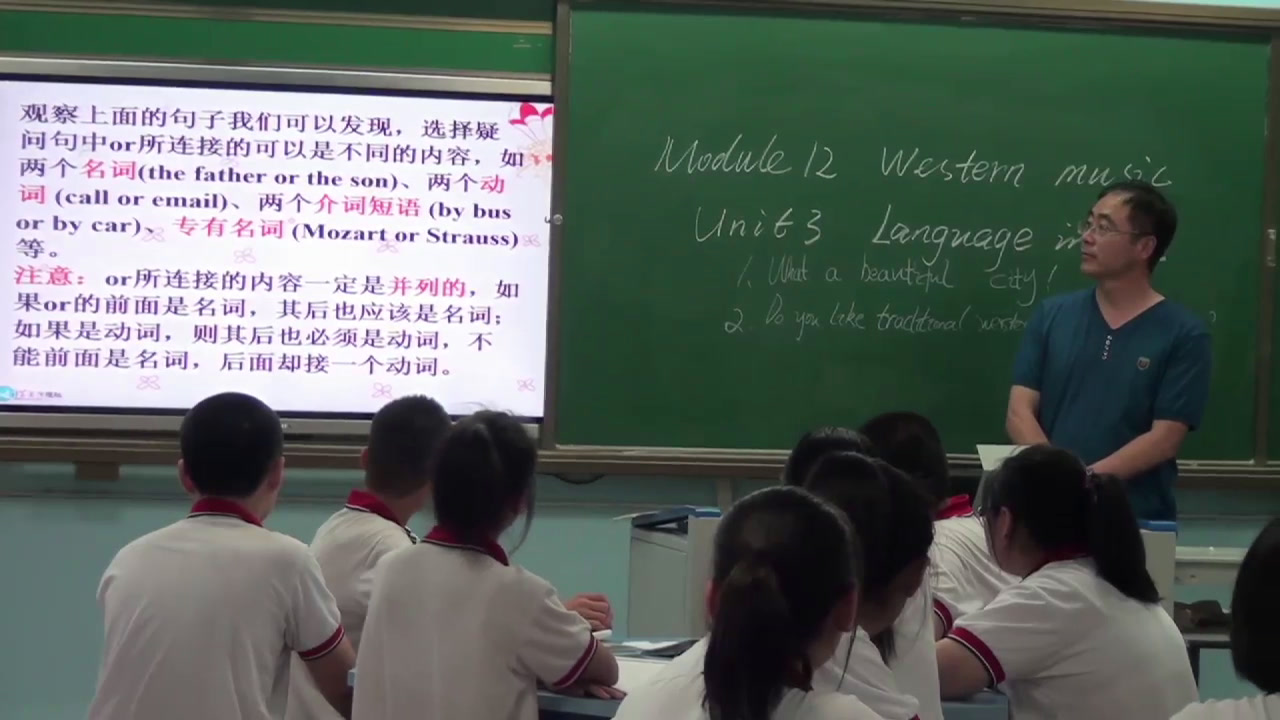 观察上面的句子我们可以发现，选择疑
问句中or所连接的可以是不同的内容，如
两个名词(the father or the son)、两个动
词 (call or email)、两个介词短语 (by bus
or by car)、专有名词 (Mozart or Strauss)
等。
注意： or所连接的内容一定是并列的，如
果or的前面是名词，其后也应该是名词；
如果是动词，则其后也必须是动词，不
能前面是名词，后面却接一个动词。
Module 12 Western music
Unit 3 Language
1. What a beautiful city!
2. Do you like traditional